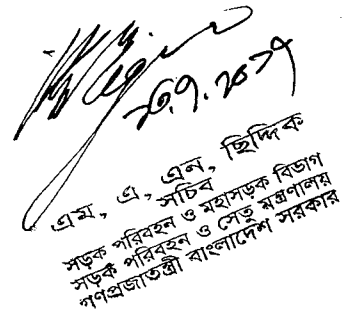 ২৩.৭.২০১৭
এম, এ, এন, ছিদ্দিক
সচিব
সড়ক পরিবহন ও মহাসড়ক বিভাগ
সড়ক পরিবহন ও সেতু মন্ত্রণালয়
গণপ্রজাতন্ত্রী বাংলাদেশ সরকার